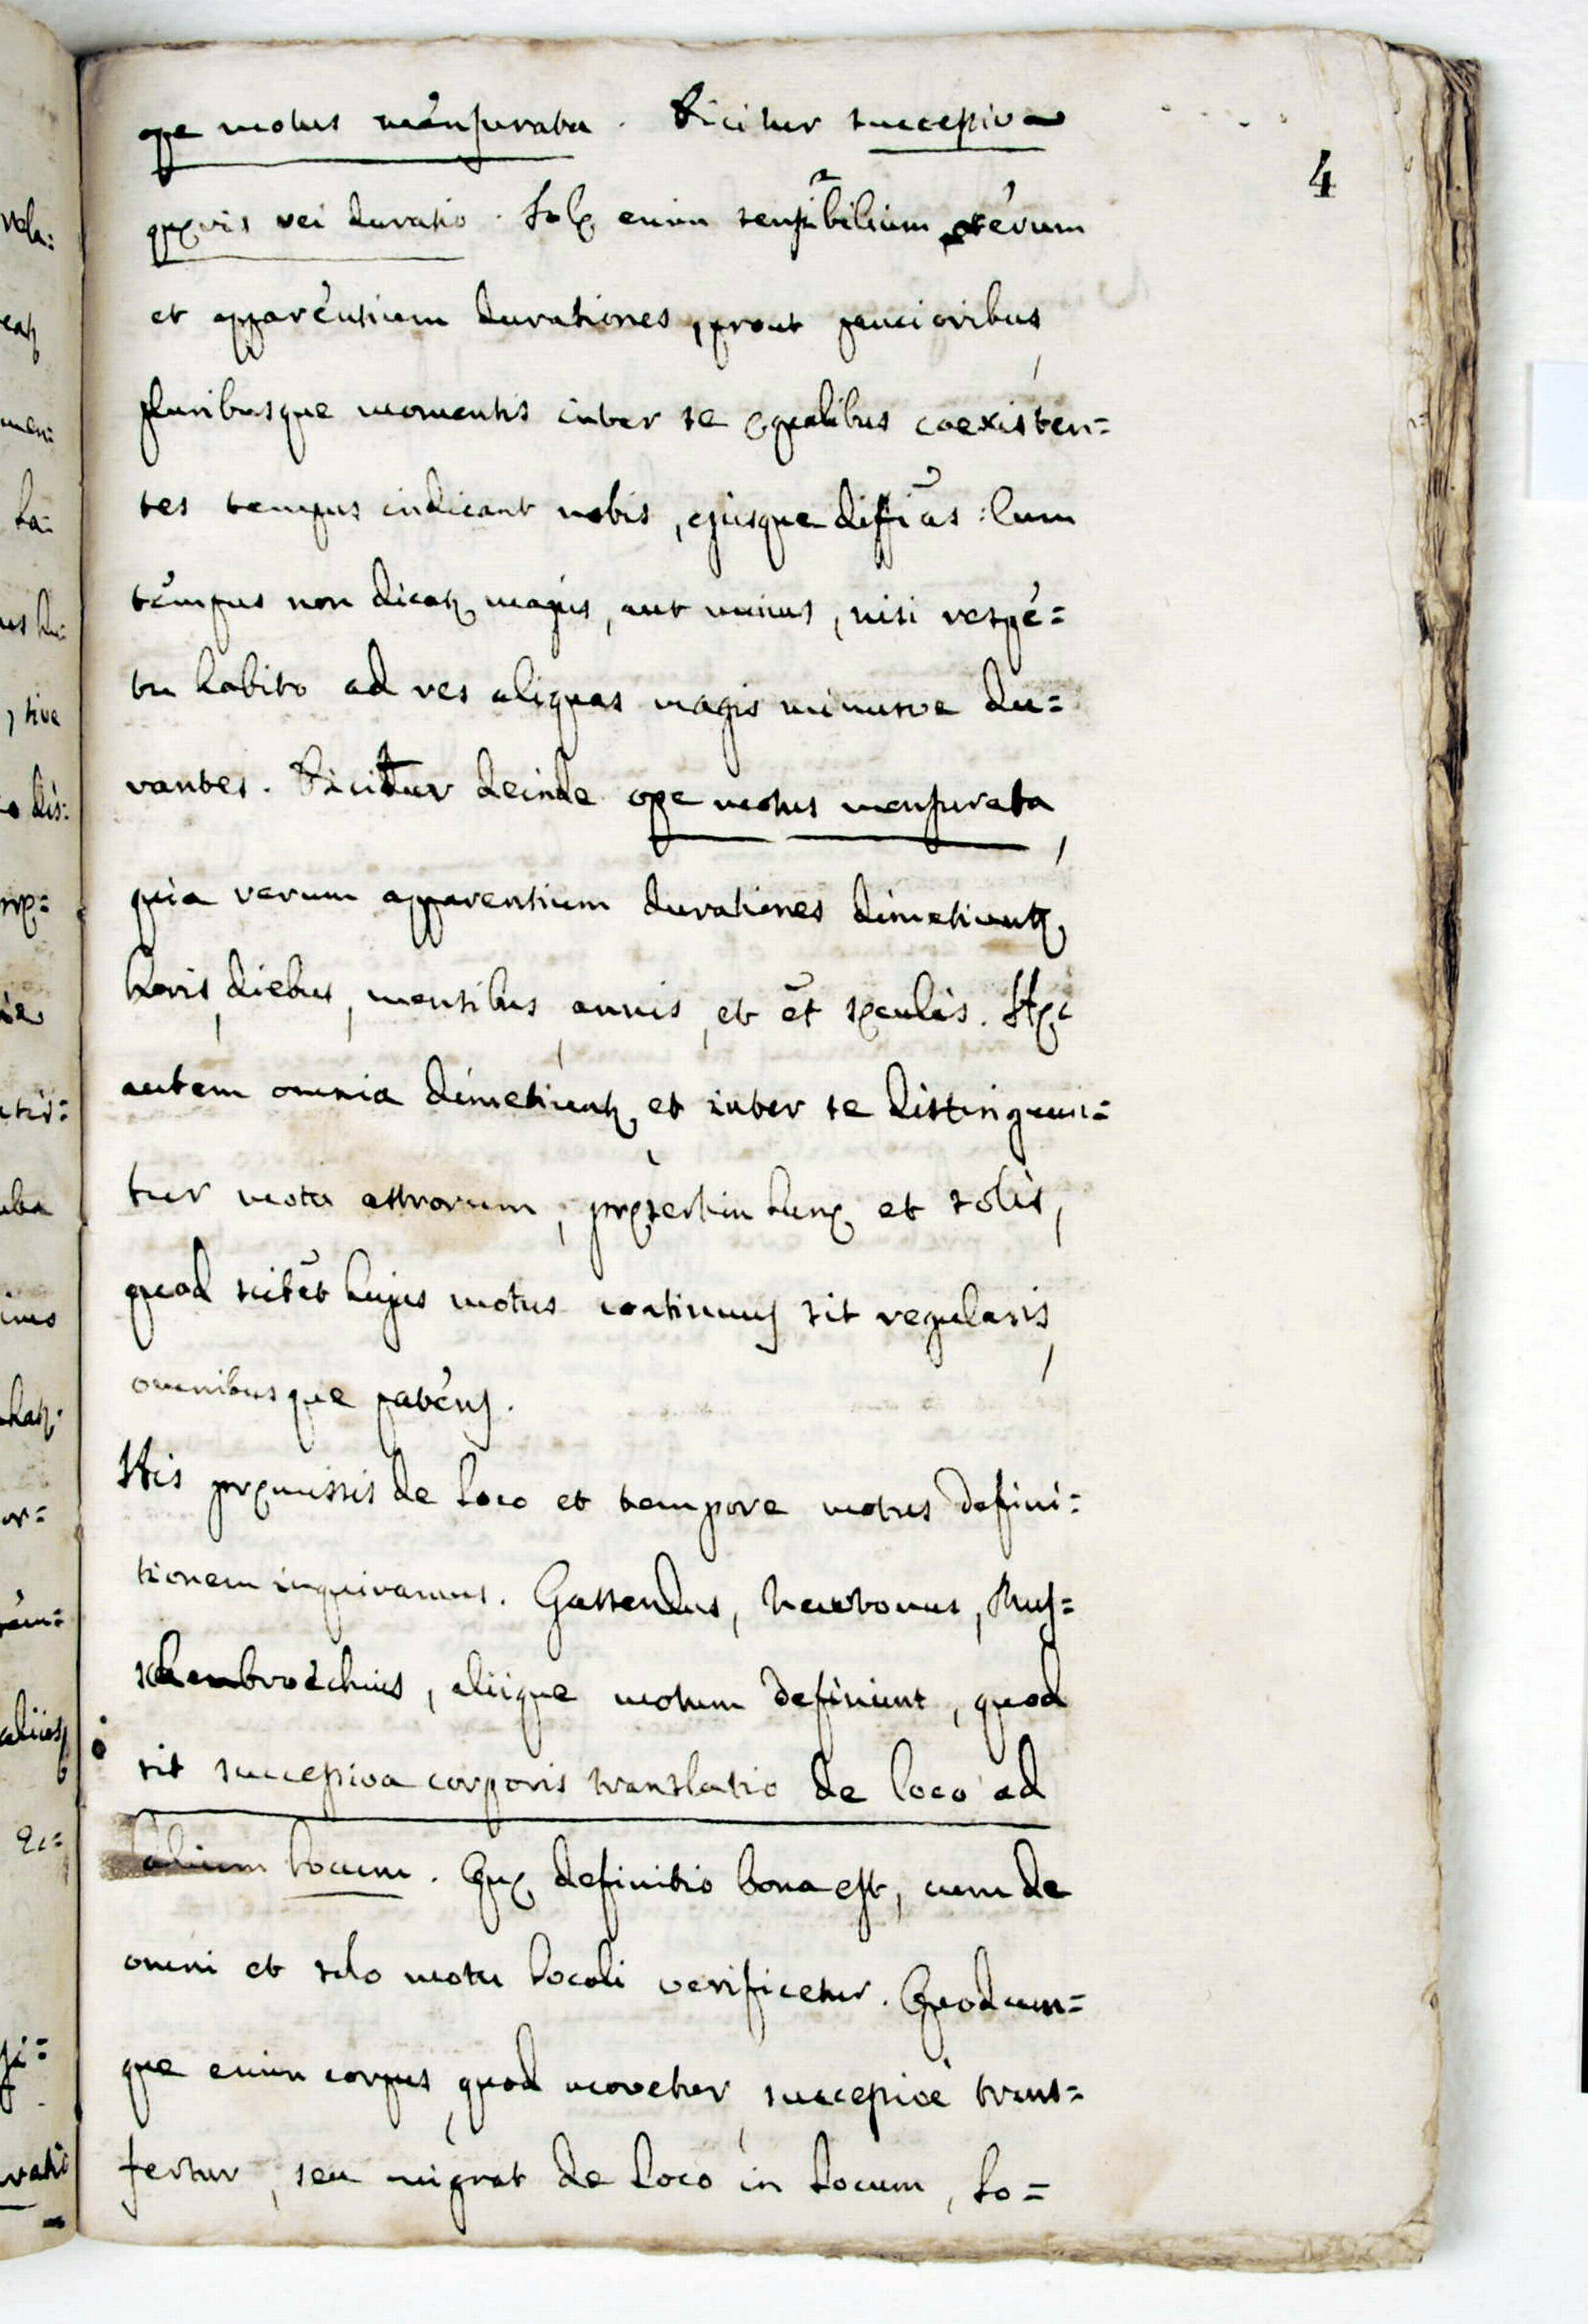 4
ope motus mensurata. Dicitur successiva
quævis rei duratio. Solæ enim sensibilium rerum
et apparentium durationes, prout paucioribus,
pluribusque momentis inter se æqualibus coexisten=
tes tempus indicant nobis, ejusque diffias: Cum
tempus non dicatꝶ majus, aut minus, nisi respé=
tu habito ad res aliquas magis minusve du=
rantes. Dicitur deinde ope motus mensurata,
quia rerum apparentium durationes dimetiuntꝶ
horis, diebus, mensibus, annis, et et̃ sæculis. Hæc
autem omnia dimetiuntꝶ, et inter se distinguun=
tur motu astrorum, præsertim lunæ et solis,
quod hujus motus continuus sit regularis,
omnibusque patens.
His præmissis de loco et tempore motus defini=
tionem inquiramus. Gassendus, Newtonus, Mus=
schenbroechius, aliique motum definiunt, quod
sit successiva corporis translatio de loco ad
alium locum. Quæ definitio bona est, cum de
omni et solo motu locali verificetur. Quodcum=
que enim corpus, quod movetur, successivè trans=
fertur, seu migrat de loco in locum, lo=